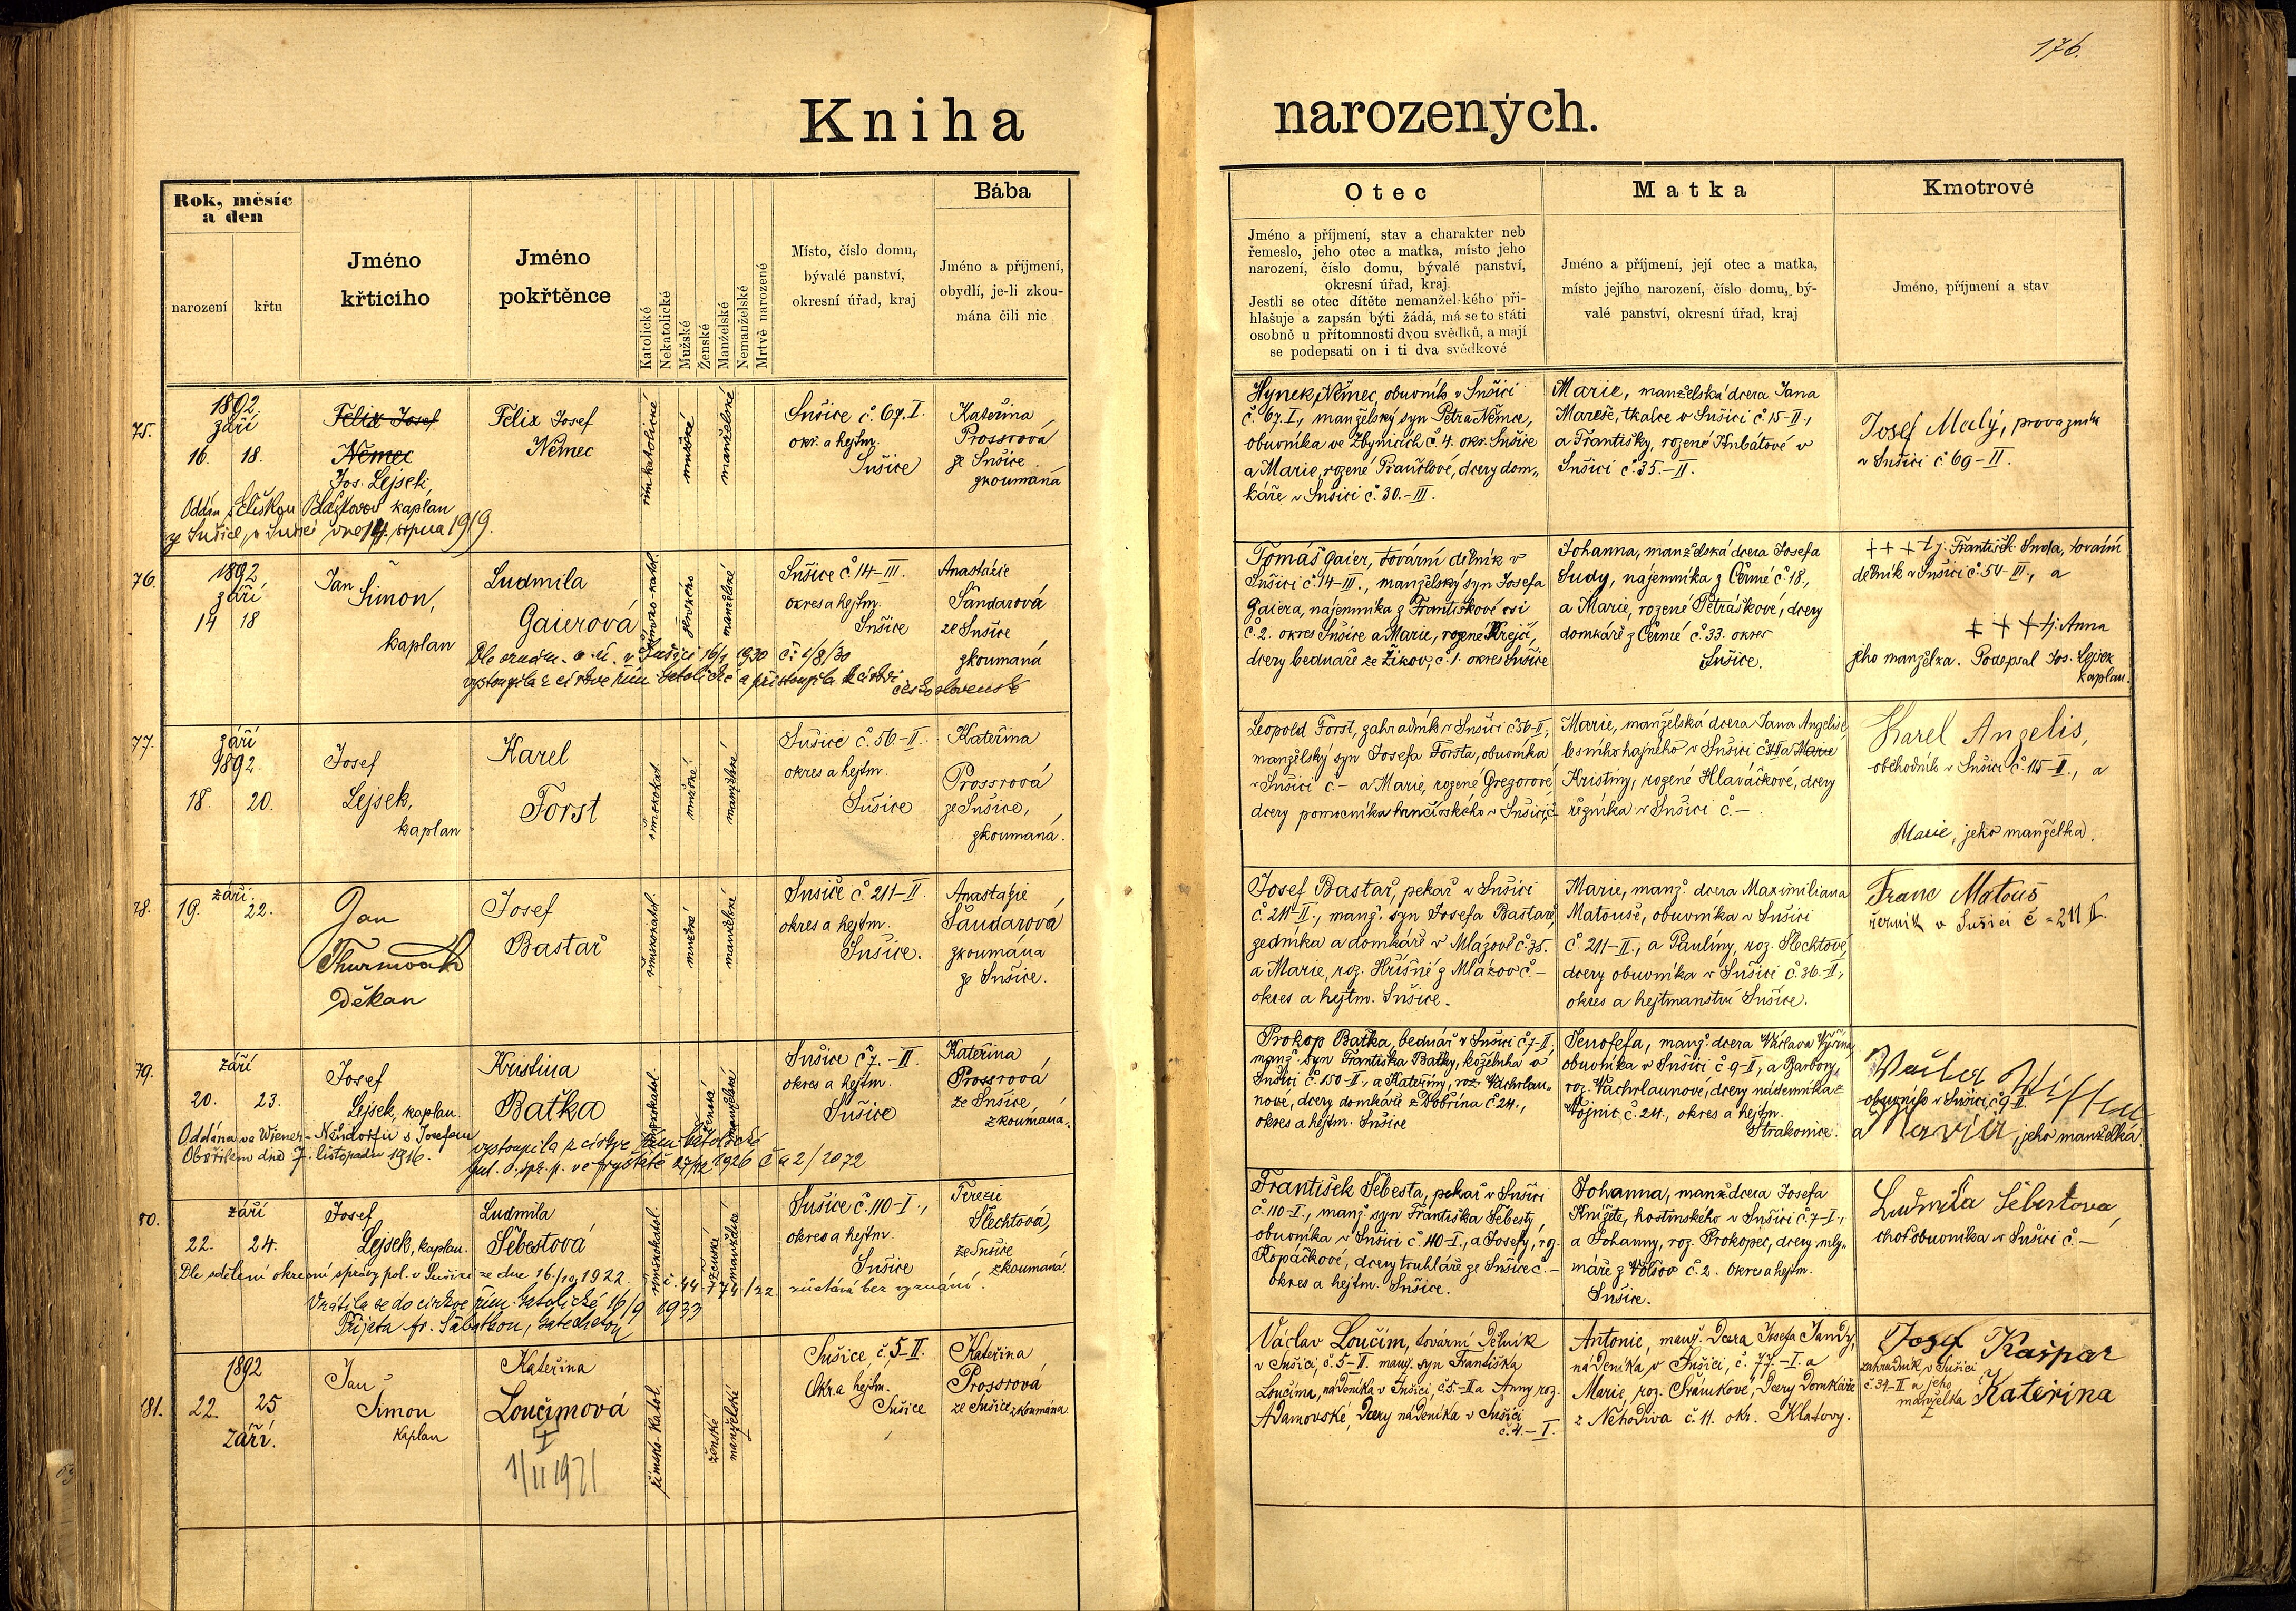 176.
Kniha
narozených.
Rok, měsíc
a den
narození
křtu
Jméno
křticího
Jméno
pokřtěnce
Katolické
Nekatolické
Mužské
Ženské
Manželské
Nemanželské
Mrtvě narozené
Místo, číslo domu,
bývalé panství,
okresní úřad, kraj
Bába
Jméno a příjmení,
obydlí, je-li zkou-
mána čili nic
Otec
Jméno a příjmení, stav a charakter neb
řemeslo, jeho otec a matka, místo jeho
narození, číslo domu, bývalé panství,
okresní úřad, kraj.
Jestli se otec dítěte nemanželského při-
hlašuje a zapsán býti žádá, má se to státi
osobně u přítomnosti dvou svědků, a mají
se podepsati on i ti dva svědkové
Matka
Jméno a příjmení, její otec a matka,
místo jejího narození, číslo domu, bý-
valé panství, okresní úřad, kraj
Kmotrové
Jméno, příjmení a stav
75.
1892
září
16. 18.
Felix Josef
Němec
Jos. Lejsek,
kaplan
Felix Josef
Němec
římskokatolické
mužské
manželské
Sušice č. 67. I.
okr. a hejtm.
Sušice
Kateřina
Prossrová
ze Sušice
zkoumaná
Oddán s Eliškou
ze Sušice, v Sušici dne 14. srpna 1919.
Hynek Němec, obuvník v Sušici
č. 67. I., manželský syn Petra Němce,
obuvníka ve Zbynicích č. 4. okr. Sušice
a Marie, rozené Prančlové, dcery dom-
káře v Sušici č. 30.-III.
Marie, manželská dcera Jana
Mareše, tkalce v Sušici č. 15-II.,
a Františky, rozené Hubátové v
Sušici č. 35.-II.
Josef Malý, provazník
v Sušici č 69-II.
76.
1892
září
14 18
Jan
Šimon,
kaplan
Ludmila
Gaierová
římsko-katol.
ženské
manželské
Sušice č. 14-III.
okres a hejtm.
Sušice
Anastázie
Šandarová
ze Sušice
zkoumaná
Dle oznám. o. ú. v Sušici 16/1 1930 č. 1/8/30
vystoupila z církve řím. katolické a přistoupila k církvi
československé
Tomáš Gaier, tovární dělník v
Sušici č. 14-III., manželský syn Josefa
Gaiera, nájemníka z Františkové vsi
č. 2. okres Sušice a Marie, rozené Krejčí,
dcery bednáře ze Žikov č. 1. okres Sušice
Johanna, manželská dcera Josefa
Sudy, nájemníka z Černé č. 18.,
a Marie, rozené Petráškové, dcery
domkáře z Černé č. 33. okres
Sušice.
+++ tj. František Suda, tovární
dělník v Sušici č. 54-III., a
+++ tj. Anna
jeho manželka. Podepsal Jos. Lejsek
kaplan.
77.
září
1892.
18. 20.
Josef
Lejsek,
kaplan
Karel
Forst
římskokat.
mužské
manželské
Sušice č. 56-II.
okres a hejtm.
Sušice
Kateřina
Prossrová
ze Sušice,
zkoumaná.
Leopold Forst, zahradník v Sušici č. 56-II,
manželský syn Josefa Forsta, obuvníka
v Sušici č. - a Marie, rozené Gregorové,
dcery pomocníka hrnčířského v Sušici č.
Marie, manželská dcera Jana Angelise,
lesního hajného v Sušici a Marie
Kristiny, rozené Hlaváčkové, dcery
řezníka v Sušici č. -
Karel Angelis,
obchodník v Sušici č. 115-II., a
Marie, jeho manželka.
78.
září
19. 22.
Jan
Děkan
Josef
Bastař
římskokatol.
mužské
manželské
Sušice č. 211-II.
okres a hejtm.
Sušice.
Anastazie
Šandarová
zkoumána
ze Sušice.
Josef Bastař, pekař v Sušici
č. 211-II., manž. syn Josefa Bastaře,
zedníka a domkáře v Mlázově č. 35.
a Marie, roz. Hříšné z Mlázov č. -
okres a hejtm. Sušice.
Marie, manž. dcera Maximiliana
Matouše, obuvníka v Sušici
č. 211-II., a Paulíny, roz. Šlechtové,
dcery obuvníka v Sušici č. 36.-II.,
okres a hejtmanství Sušice.
Franc Matouš
řezník v Sušici č = 211 II.
79.
září
20. 23.
Josef
Lejsek, kaplan.
Kristina
Baťka
římskokatol.
ženská
manželská
Sušice č. 7.-II
okres a hejtm.
Sušice
Kateřina
Prossrová
ze Sušice,
zkoumána.
Oddána ve Wiener-Neudorfu s Josefem
dne 7. listopadu 1916.
vystoupila z církve řím. katolické
27/12 1926 č 2/2072
Prokop Baťka, bednář v Sušici č. 7-II,
manž. syn Františka Baťky, koželuha v
Sušici č. 150-II., a Kateřiny, roz. Wachrlau-
nové, dcery domkáře z Dobřína č. 24.,
okres a hejtm. Sušice
Jenofefa, manž. dcera Václava
obuvníka v Sušici č. 9-II, a Barbory,
roz. Wachrlaunové, dcery nádenníka z
Vojnic č. 24., okres a hejtm.
Strakonice.
obuvník v Sušici, č. 9 II.
a Maria, jeho manželka.
80.
září
22. 24.
Josef
Lejsek, kaplan.
Ludmila
Šebestová
římskokatol.
ženské
manželské
Sušice č. 110-I.,
okres a hejtm.
Sušice
Terezie
Šlechtová,
ze Sušice
zkoumaná.
Dle sdělení okresní správy pol. v Sušici ze dne 16./10 1922. č. 44.774/22 zůstává bez vyznání.
Vrátila se do církve řím. katolické 16/9 1933
Přijata fr. Sabatkou, katechetou
František Šebesta, pekař v Sušici
č. 110-I., manž. syn Františka Šebesty,
obuvníka v Sušici č. 110-I., a Josefy, roz.
Kopáčkové, dcery truhláře ze Sušice č. -
okres a hejtm. Sušice.
Johanna, manž. dcera Josefa
Knížete, hostinského v Sušici č. 7-I.,
a Johanny, roz. Prokopec, dcery mly-
náře z Volšov č. 2. Okres a hejtm.
Sušice.
Ludmila Šebestova,
choť obuvníka v Sušici č. -
181.
1892
22. 25
září.
Jan
Šimon
kaplan
Kateřina
Loučímová
†
1/II 1971
římsko-katol.
ženské
manželské
Sušice, č. 5-II.
Okr. a hejtm.
Sušice
Kateřina
Prossrová
ze Sušice zkoumána
Václav Loučím, tovární dělník
v Sušici, č. 5-II. manž. syn Františka
Loučíma, nádeníka v Sušici, č. 5-II a Anny roz.
Adamovské, dcery nádeníka v Sušici
č. 4.-I.
Antonie, manž. dcera Josefa Jandy,
nádeníka v Sušici, č. 77.-I. a
Marie, roz. Šrámkové, dcery domkáře
z Nehodiva č. 11. okr. Klatovy.
Josef Kašpar
zahradník v Sušici
č. 34-II a jeho
manželka Kateřina